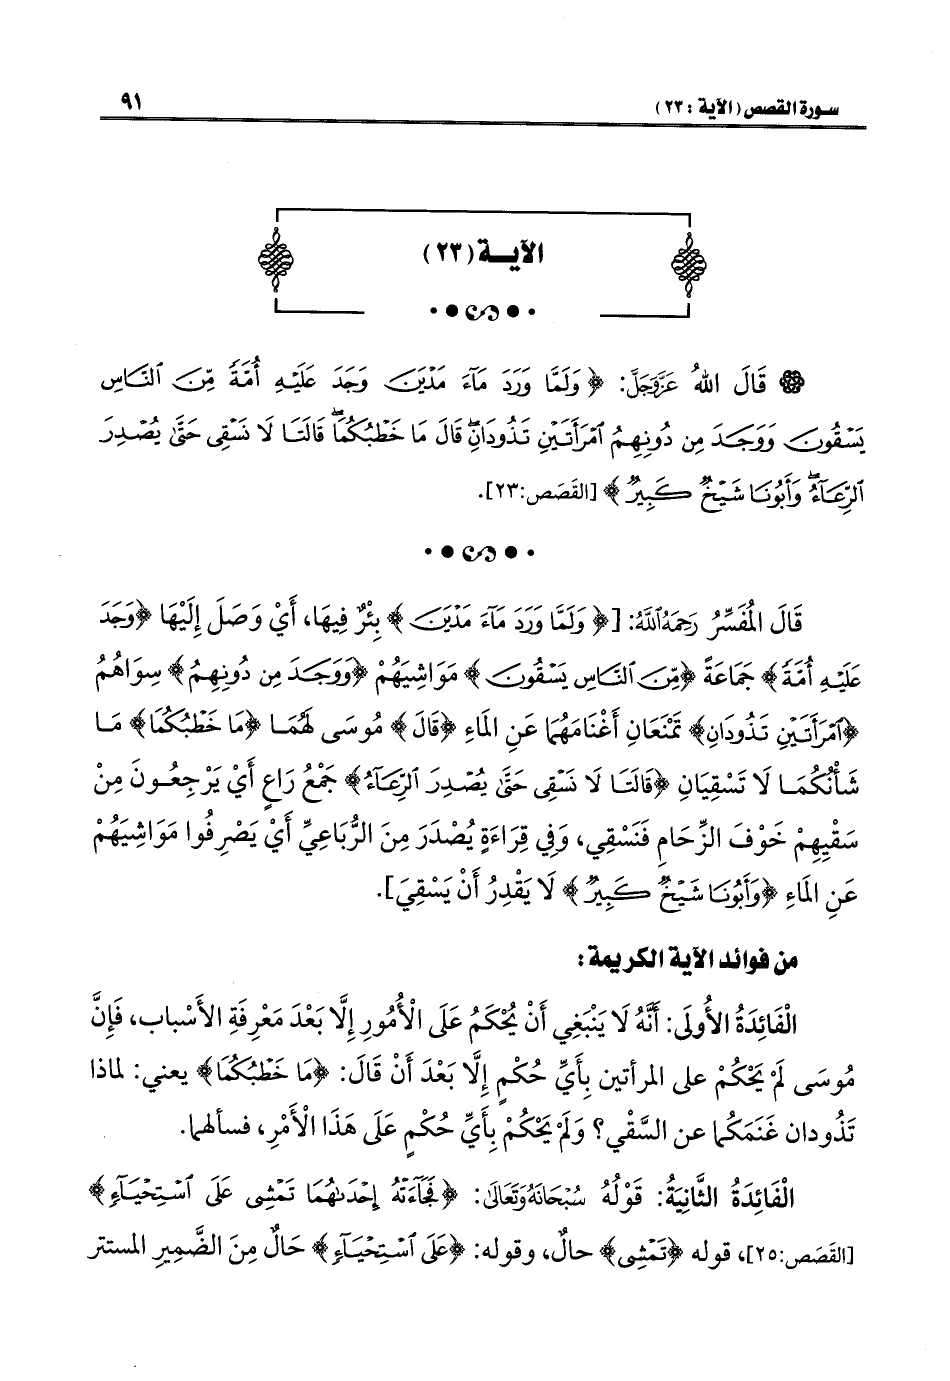 سورة القصص (الآية : ٢٣)
٩١
الآيــة (٢٣)
قَالَ اللهُ عَزَّوَجَلَّ: ﴿ وَلَمَّا وَرَدَ مَآءَ مَدْيَنَ وَجَدَ عَلَيْهِ أُمَّةً مِّنَ ٱلنَّاسِ
يَسْقُونَ وَوَجَدَ مِن دُونِهِمُ ٱمْرَأَتَيْنِ تَذُودَانِۖ قَالَ مَا خَطْبُكُمَاۖ قَالَتَا لَا نَسْقِى حَتَّىٰ يُصْدِرَ
ٱلرِّعَآءُۖ وَأَبُونَا شَيْخٌ كَبِيرٌ ﴾ [القَصَص:٢٣].
قَالَ المُفَسِّرُ رَحِمَهُ اللَّهُ: [﴿ وَلَمَّا وَرَدَ مَآءَ مَدْيَنَ ﴾ بِئْرٌ فِيهَا، أَيْ وَصَلَ إِلَيْهَا ﴿وَجَدَ
عَلَيْهِ أُمَّةً﴾ جَمَاعَةً ﴿مِّنَ ٱلنَّاسِ يَسْقُونَ﴾ مَوَاشِيَهُمْ ﴿وَوَجَدَ مِن دُونِهِمُ﴾ سِوَاهُمُ
﴿ٱمْرَأَتَيْنِ تَذُودَانِ﴾ تَمْنَعَانِ أَغْنَامَهُمَا عَنِ المَاءِ ﴿قَالَ﴾ مُوسَى لَهُمَا ﴿مَا خَطْبُكُمَا﴾ مَا
شَأْنُكُمَا لَا تَسْقِيَانِ ﴿قَالَتَا لَا نَسْقِى حَتَّىٰ يُصْدِرَ ٱلرِّعَآءُ﴾ جَمْعُ رَاعٍ أَيْ يَرْجِعُونَ مِنْ
سَقْيِهِمْ خَوْفَ الزِّحَامِ فَنَسْقِي، وَفِي قِرَاءَةٍ يُصْدَرَ مِنَ الرُّبَاعِيِّ أَيْ يَصْرِفُوا مَوَاشِيَهُمْ
عَنِ المَاءِ ﴿وَأَبُونَا شَيْخٌ كَبِيرٌ﴾ لَا يَقْدِرُ أَنْ يَسْقِيَ].
من فوائد الآية الكريمة:
الْفَائِدَةُ الأُولَى: أَنَّهُ لَا يَنْبَغِي أَنْ يُحْكَمُ عَلَى الْأُمُورِ إِلَّا بَعْدَ مَعْرِفَةِ الأَسْباب، فَإِنَّ
مُوسَى لَمْ يَحْكُمْ على المرأتين بِأَيِّ حُكْمٍ إِلَّا بَعْدَ أَنْ قَالَ: ﴿مَا خَطْبُكُمَا﴾ يعني: لماذا
تَذُودان غَنَمَكُما عن السَّقْي؟ وَلَمْ يَحْكُمْ بِأَيِّ حُكْمٍ عَلَى هَذَا الْأَمْرِ، فسألهما.
الْفَائِدَةُ الثَّانِيَةُ: قَوْلُهُ سُبْحَانَهُ وَتَعَالَى: ﴿فَجَآءَتْهُ إِحْدَىٰهُمَا تَمْشِى عَلَى ٱسْتِحْيَآءٍ﴾
[القَصَص:٢٥]، قوله ﴿تَمْشِى﴾ حالٌ، وقوله: ﴿عَلَى ٱسْتِحْيَآءٍ﴾ حَالٌ مِنَ الضَّمِيرِ المستتر